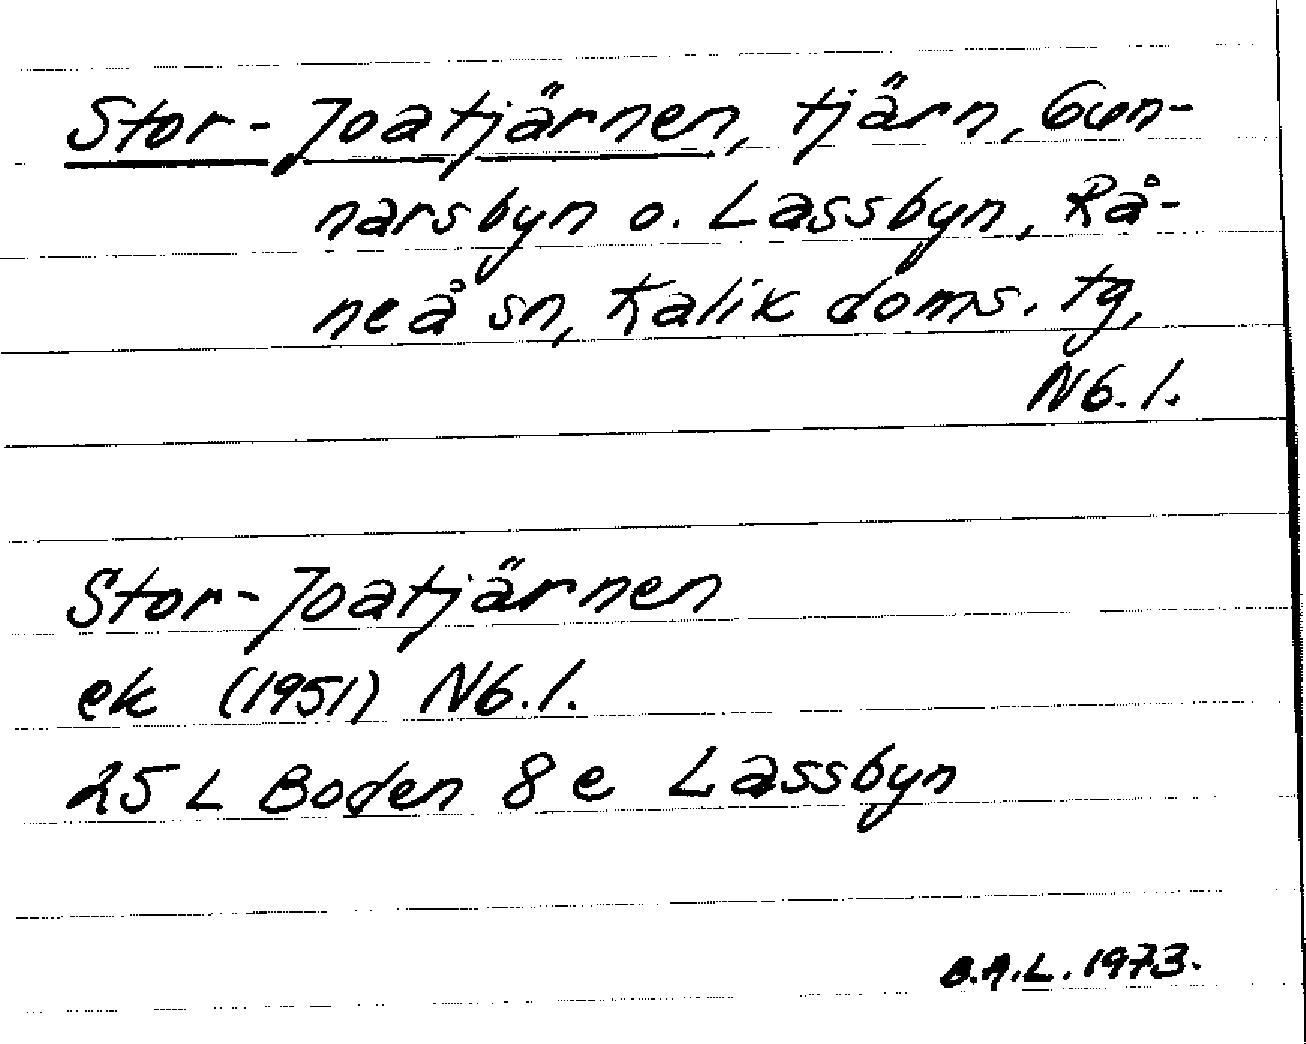 Stor-Joatjärnen, tjärn, Gun-
narsbyn o. Lassbyn, Rå-
neå sn, Kalix doms. tg,
Nb. l.
Stor-Joatjärnen
ek (1951) Nb. l.
25 L Boden 8 e Lassbyn
B.A.L. 1973.